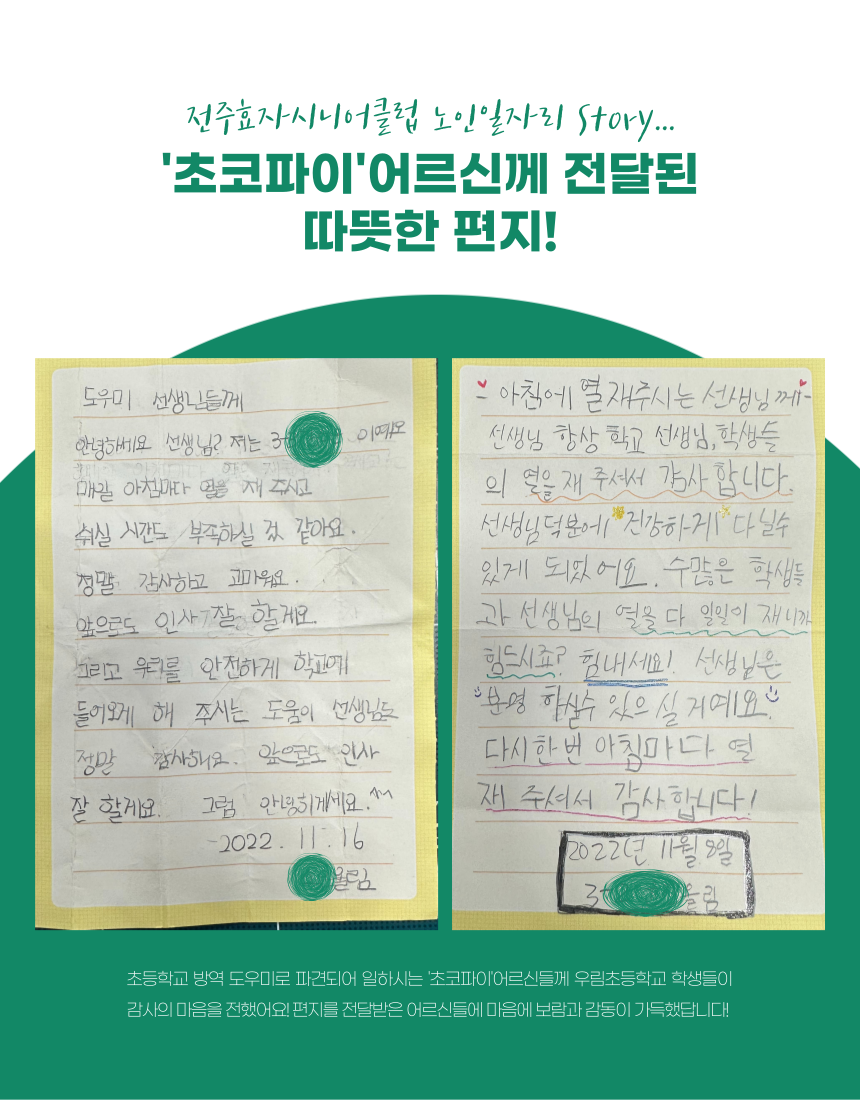 전주효자시니어클럽 노인일자리 Story...
'초코파이'어르신께 전달된
따뜻한 편지!
도우미 선생님들께
안녕하세요 선생님? 저는 3- 이예요
매일 아침마다 열을 재 주시고
쉬실 시간도 부족하실 것 같아요.
정말 감사하고 고마워요.
앞으로도 인사 잘 할게요
그리고 우리를 안전하게 학교에
들어오게 해 주시는 도움이 선생님도
정말 감사해요. 앞으로도 인사
잘 할게요. 그럼 안녕히계세요.^^
-2022. 11. 16
올림
- 아침에 열 재주시는 선생님께 -
선생님 항상 학교 선생님, 학생들
의 열을 재 주셔서 감사합니다.
선생님덕분에 "건강하게" 다닐수
있게 되었어요. 수많은 학생들
과 선생님의 열을 다 일일이 재니까
힘드시죠? 힘내세요! 선생님은
분명 하실수 있으실거예요.
다시한번 아침마다 열
재 주셔서 감사합니다!
2022년 11월 8일
3- 올림
초등학교 방역 도우미로 파견되어 일하시는 '초코파이'어르신들께 우림초등학교 학생들이
감사의 마음을 전했어요! 편지를 전달받은 어르신들에 마음에 보람과 감동이 가득했답니다!